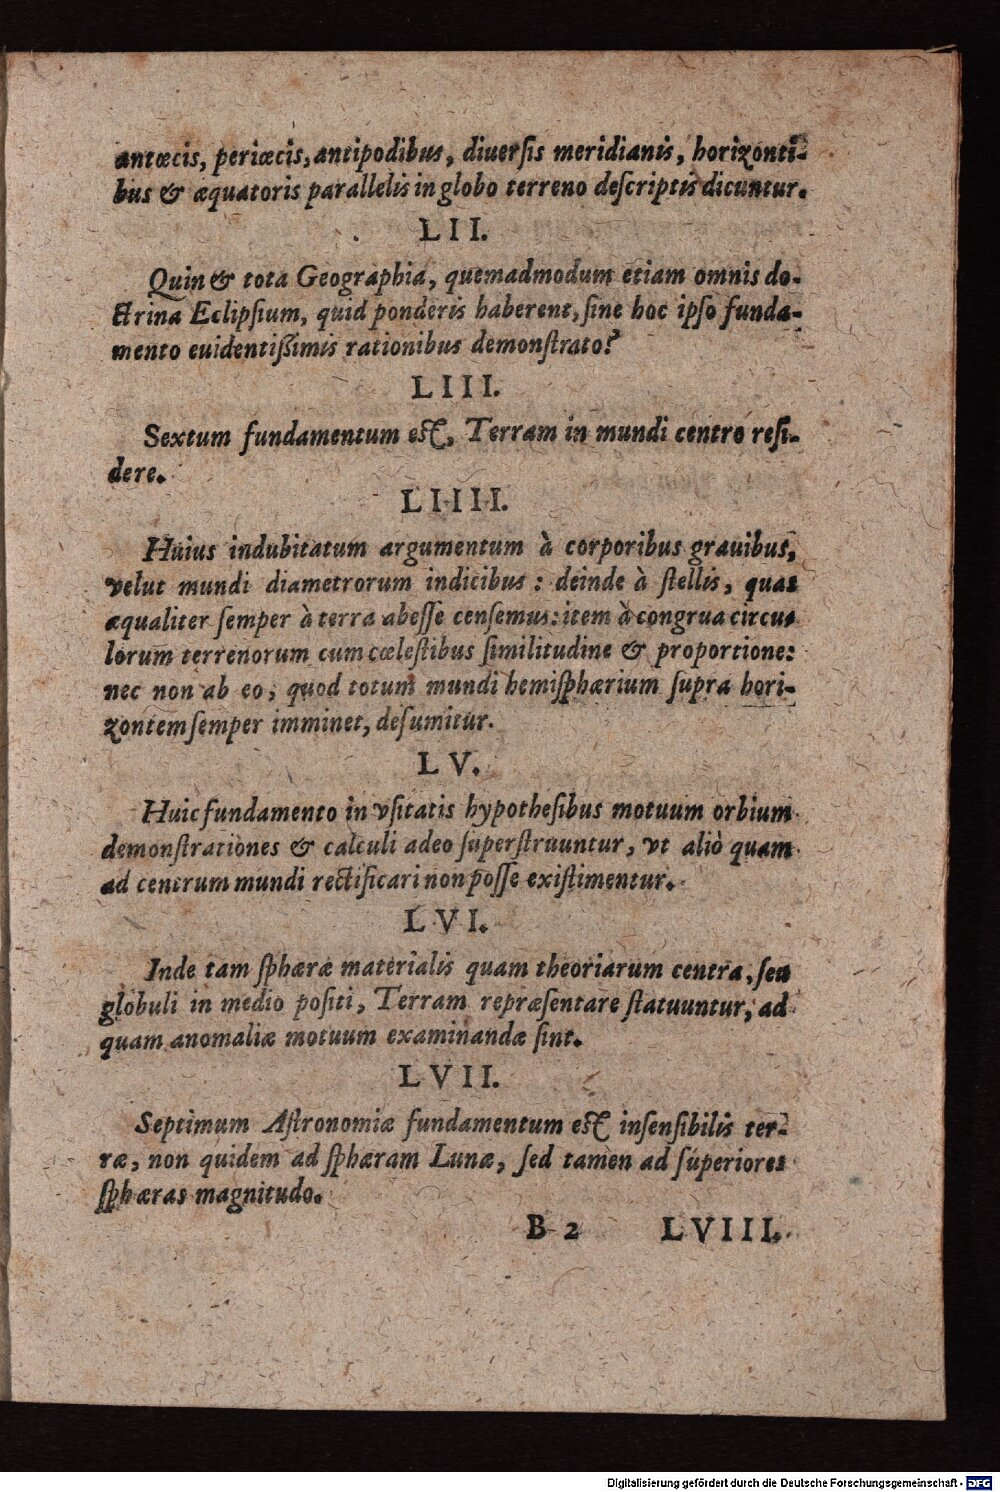 antœcis, periœcis, antipodibus, diuerſis meridianis, horizonti-
bus & æquatoris parallelis in globo terreno deſcriptis dicuntur.
LII.
Quin & tota Geographia, quemadmodum etiam omnis do-
ctrina Eclipſium, quid ponderis haberent, ſine hoc ipſo funda-
mento euidentiſſimis rationibus demonſtrato?
LIII.
Sextum fundamentum eſt, Terram in mundi centro reſi-
dere.
LIIII.
Huius indubitatum argumentum à corporibus grauibus,
velut mundi diametrorum indicibus: deinde à ſtellis, quas
æqualiter ſemper à terra abeſſe cenſemus: item à congrua circu
lorum terrenorum cum cœleſtibus ſimilitudine & proportione:
nec non ab eo, quod totum mundi hemiſphærium ſupra hori-
zontem ſemper imminet, deſumitur.
LV.
Huic fundamento in vſitatis hypotheſibus motuum orbium
demonſtrationes & calculi adeo ſuperſtruuntur, vt aliò quam
ad centrum mundi rectificari non poſſe exiſtimentur.
LVI.
Inde tam ſphæræ materialis quam theoriarum centra, ſeu
globuli in medio poſiti, Terram repræſentare ſtatuuntur, ad
quam anomaliæ motuum examinandæ ſint.
LVII.
Septimum Aſtronomiæ fundamentum eſt inſenſibilis ter-
ræ, non quidem ad ſphæram Lunæ, ſed tamen ad ſuperiores
ſphæras magnitudo.
B 2 LVIII.
Digitalisierung gefördert durch die Deutsche Forschungsgemeinschaft - DFG